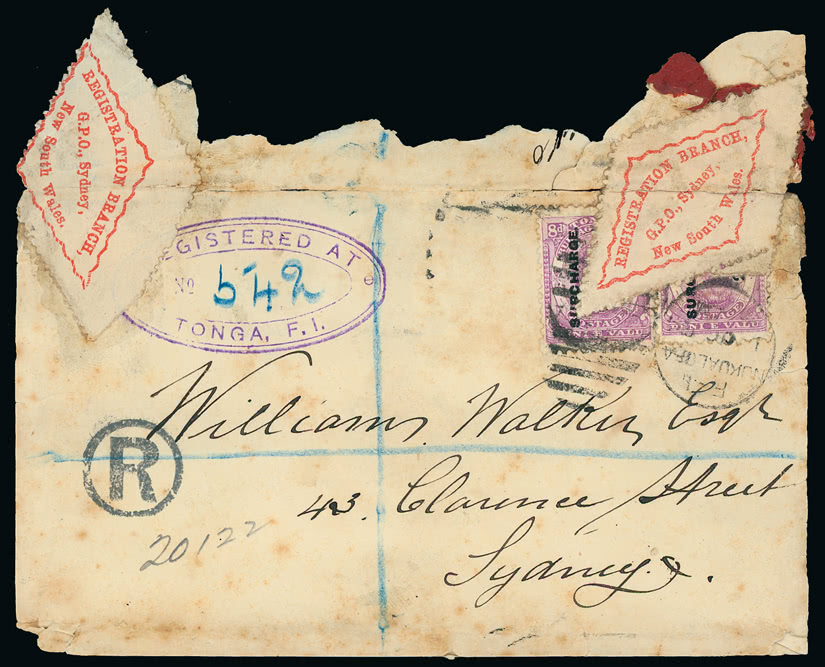 REGISTRATION BRANCH,
G.P.O., Sydney,
New South Wales.
REGISTRATION BRANCH,
G.P.O., Sydney,
New South Wales.
EGISTERED AT
No 542
TONGA, F.I.
8d
SURCHARGE.
STAGE
SUR
POSTAGE
NUKUALOFA
F.I.
William Walker Esqr
R
43. Clarence Street
20122
Sydney.